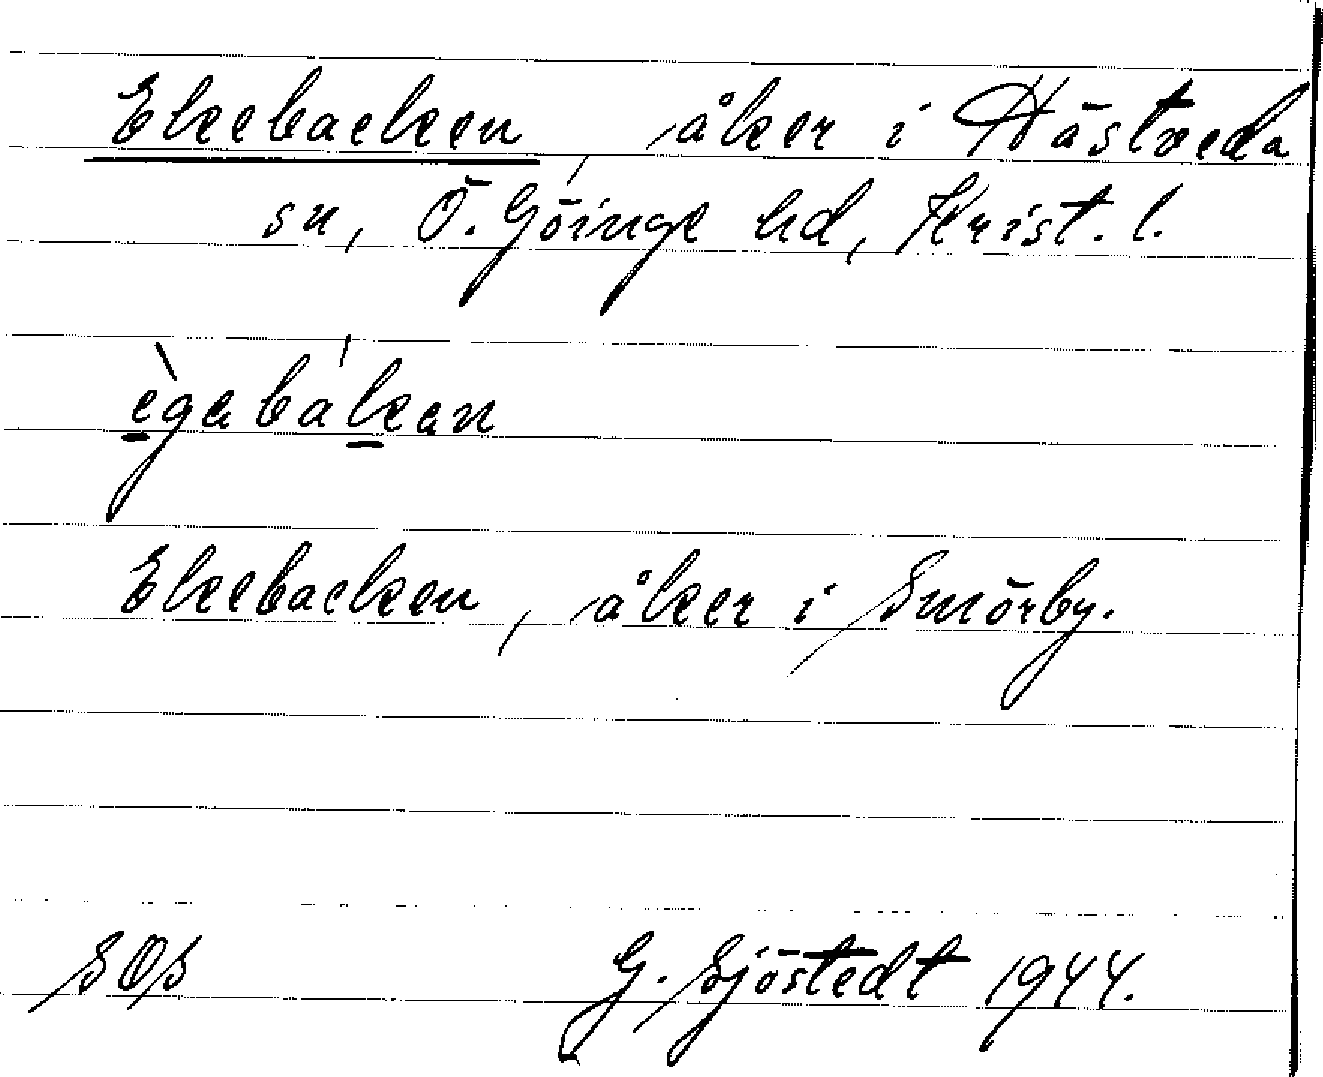 Ekebacken, åker i Hästveda
sn, Ö. Göinge hd, Krist. l.
ègabákan
Ekebacken, åker i Smörby.
SOS G. Sjöstedt 1944.